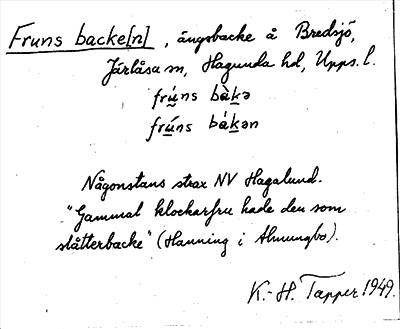 Fruns backe[n], ängsbacke å Bredsjö,
Järlåsa sn, Hagunda hd, Upps. l.
frú̱ns bàḵə
frú̱ns báḵən
Någonstans strax NV Hagalund.
"Gammal klockarfru hade den som
slåtterbacke" (Hanning i Almungbo).
K.-H. Tapper 1949.